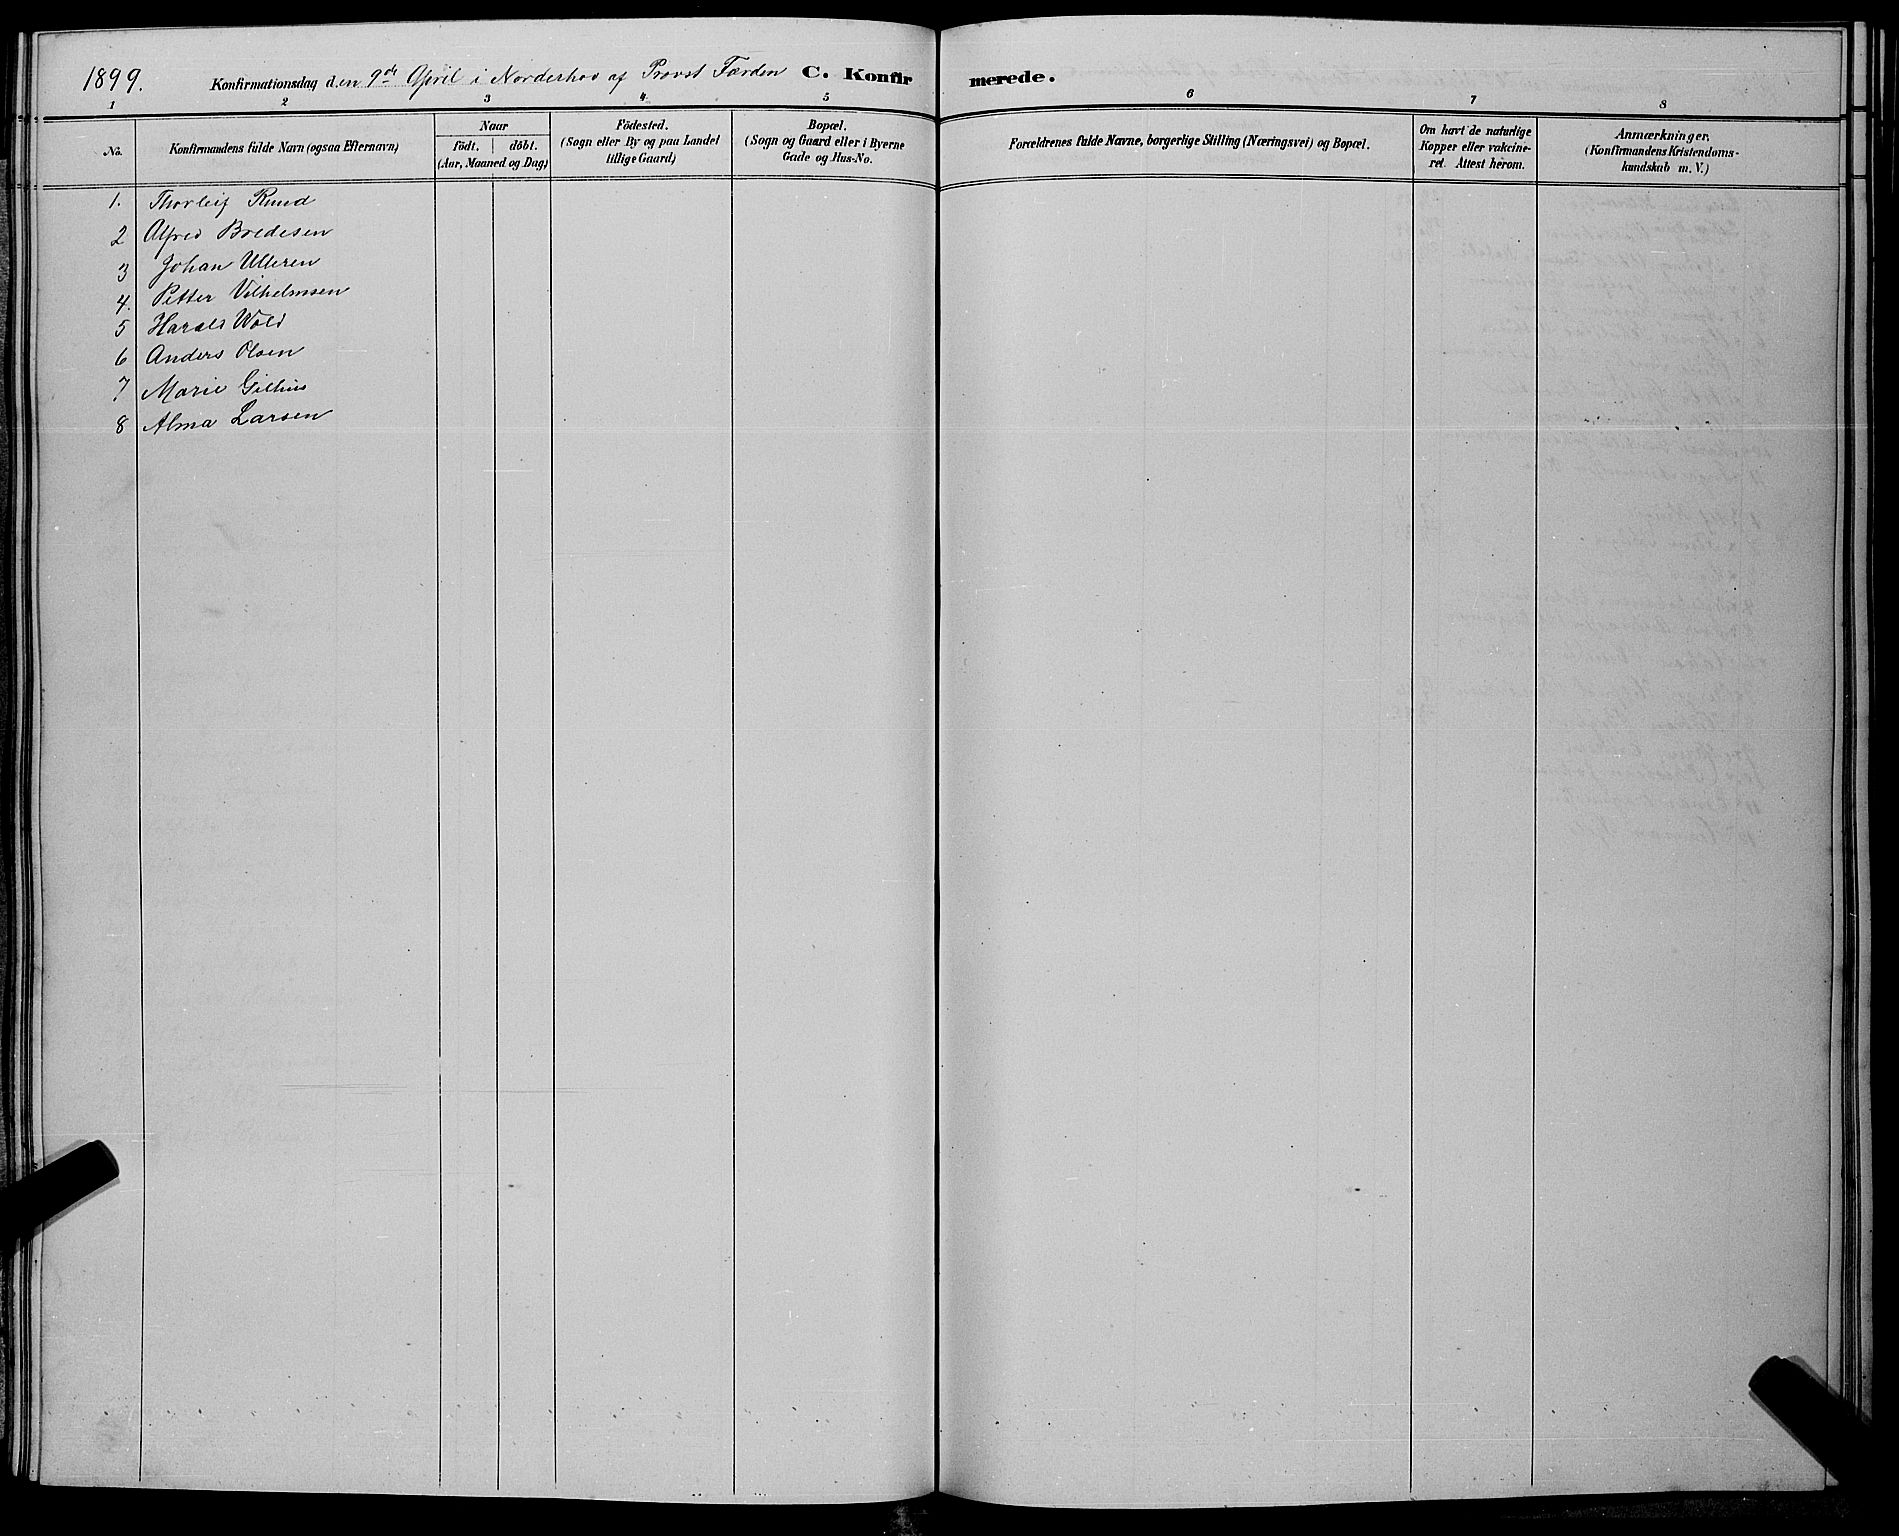 1899.
Konfirmationsdag den 9de April i Norderhov af Provst Færden C. Konfirmerede.
1 2 3 4 5 6 7 8
No.
Konfirmandens fulde Navn (ogsaa Efternavn)
Naar
födt. döbt.
(Aar, Maaned og Dag)
Födested.
(Sogn eller By og paa Landet
tillige Gaard)
Bopæl.
(Sogn og Gaard eller i Byerne
Gade og Hus-No.
Forældrenes fulde Navne, borgerlige Stilling (Næringsvei) og Bopæl.
Om havt de naturlige
Kopper eller vakcine-
ret. Attest herom.
Anmærkninger.
(Konfirmandens Kristendoms-
kundskab m. V.)
1. Thorleif Ruud
2 Alfred Bredesen
3 Johan Ulleren
4. Petter Vilhelmsen
5 Harald Wold
6 Anders Olsen
7 Marie Gilhus
8 Alma Larsen